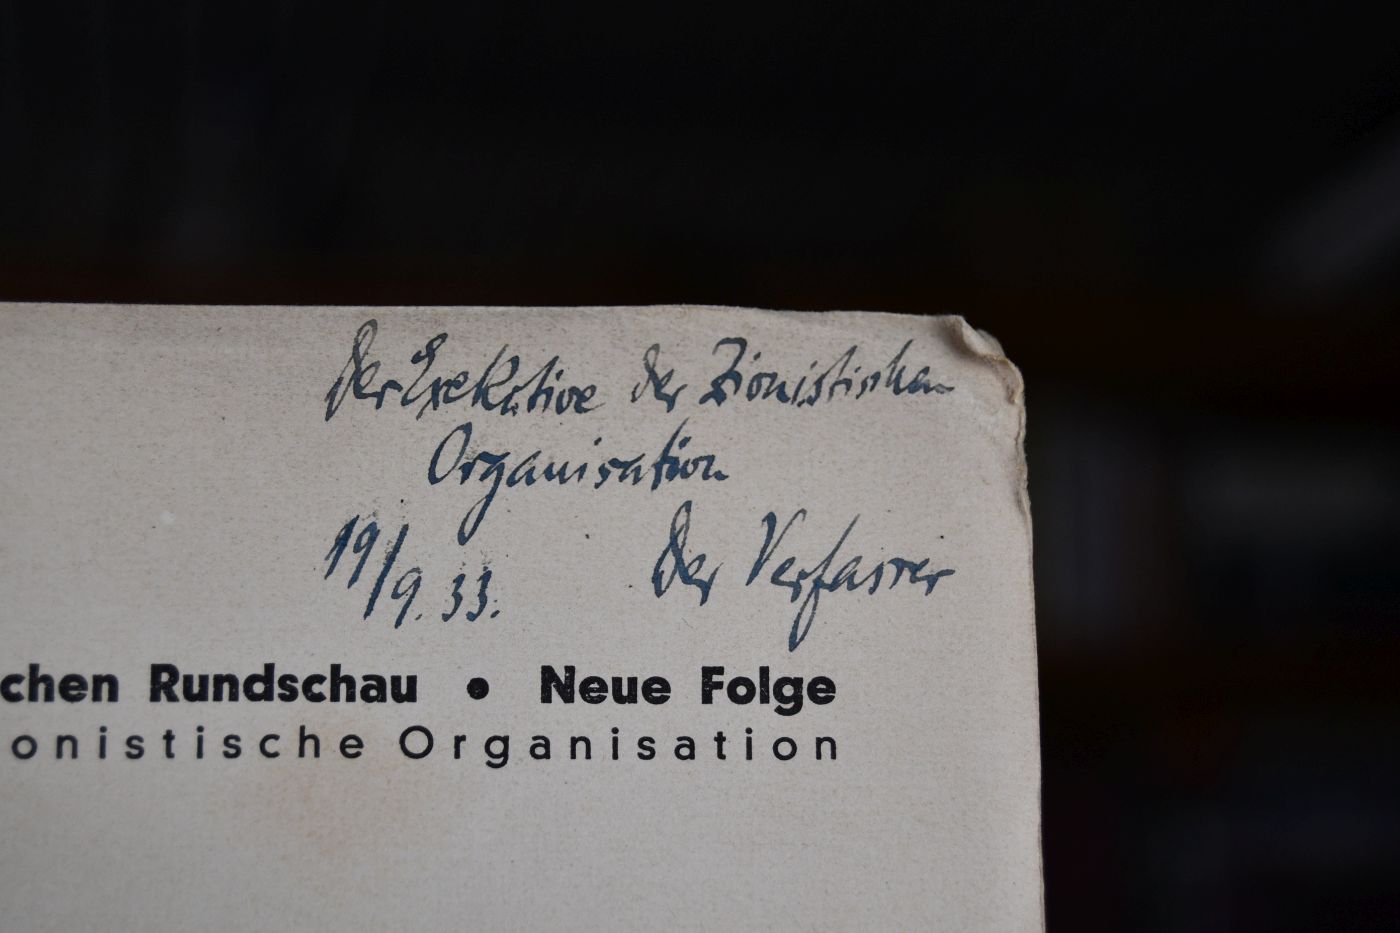 Der Exekutive der Zionistischen
Organisation
19/9.33. Der Verfasser
chen Rundschau • Neue Folge
onistische Organisation